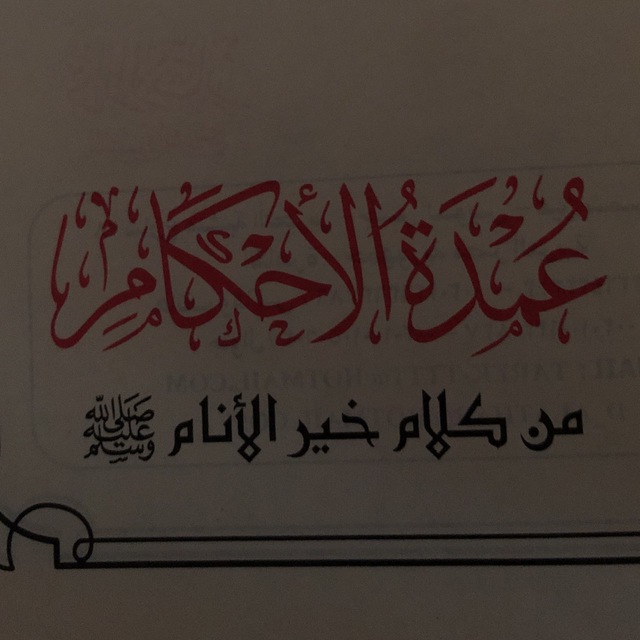 عُمْدَةُ الأَحْكَامِ
من كلام خير الأنام ﷺ